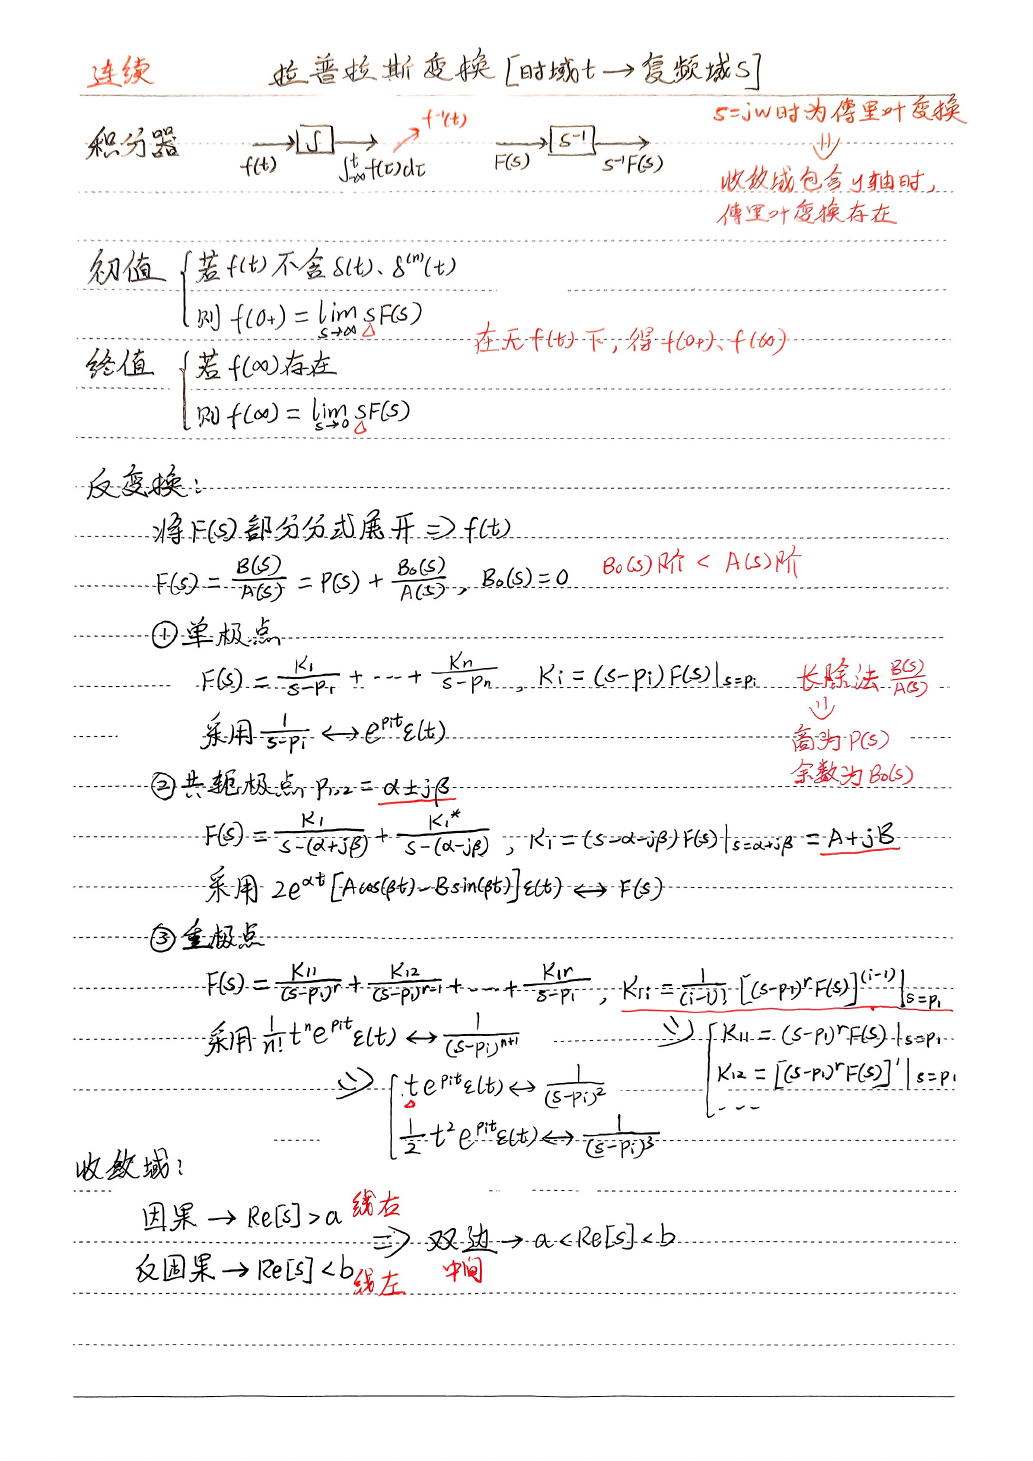 连续 拉普拉斯变换[时域t→复频域S]
s=jw时为傅里叶变换
积分器 f(t) → ∫ → ∫_{-∞}^{t} f(τ)dτ f⁻¹(t) F(s) → s⁻¹ → s⁻¹F(s)
⇓
收敛域包含y轴时,
傅里叶变换存在
初值 { 若f(t)不含δ(t)、δ⁽ⁿ⁾(t)
则 f(0+) = lim_{s→∞} sF(s)
在无f(t)下,得f(0+)、f(∞)
终值 { 若f(∞)存在
则 f(∞) = lim_{s→0} sF(s)
反变换:
将F(s)部分分式展开 ⇒ f(t)
F(s) = B(s)/A(s) = P(s) + B₀(s)/A(s), B₀(s)=0 B₀(s)阶 < A(s)阶
①单极点
F(s) = K₁/(s-p₁) + ... + Kn/(s-pn), Ki = (s-pi)F(s)|s=pi 长除法 B(s)/A(s)
⇓
采用 1/(s-pi) ↔ e^{pit}ε(t) 商为P(s)
余数为B₀(s)
②共轭极点 p₁,₂ = α±jβ
F(s) = K₁/(s-(α+jβ)) + K₁*/(s-(α-jβ)), K₁ = (s-α-jβ)F(s)|s=α+jβ = A+jB
采用 2e^{αt}[Acos(βt)-Bsin(βt)]ε(t) ↔ F(s)
③重极点
F(s) = K₁₁/(s-p₁)^r + K₁₂/(s-p₁)^{r-1} + ... + K₁r/(s-p₁), K₁i = 1/(i-1)! [(s-p₁)^r F(s)]^{(i-1)}|s=p₁
采用 1/n! tⁿe^{pit}ε(t) ↔ 1/(s-pi)^{n+1} ⇒ { K₁₁ = (s-p₁)^r F(s)|s=p₁
K₁₂ = [(s-p₁)^r F(s)]'|s=p₁
...
⇒ { te^{pit}ε(t) ↔ 1/(s-pi)²
1/2 t²e^{pit}ε(t) ↔ 1/(s-pi)³
收敛域:
因果 → Re[s]>a 线右
⇒ 双边 → a<Re[s]<b
反因果 → Re[s]<b 线左 中间